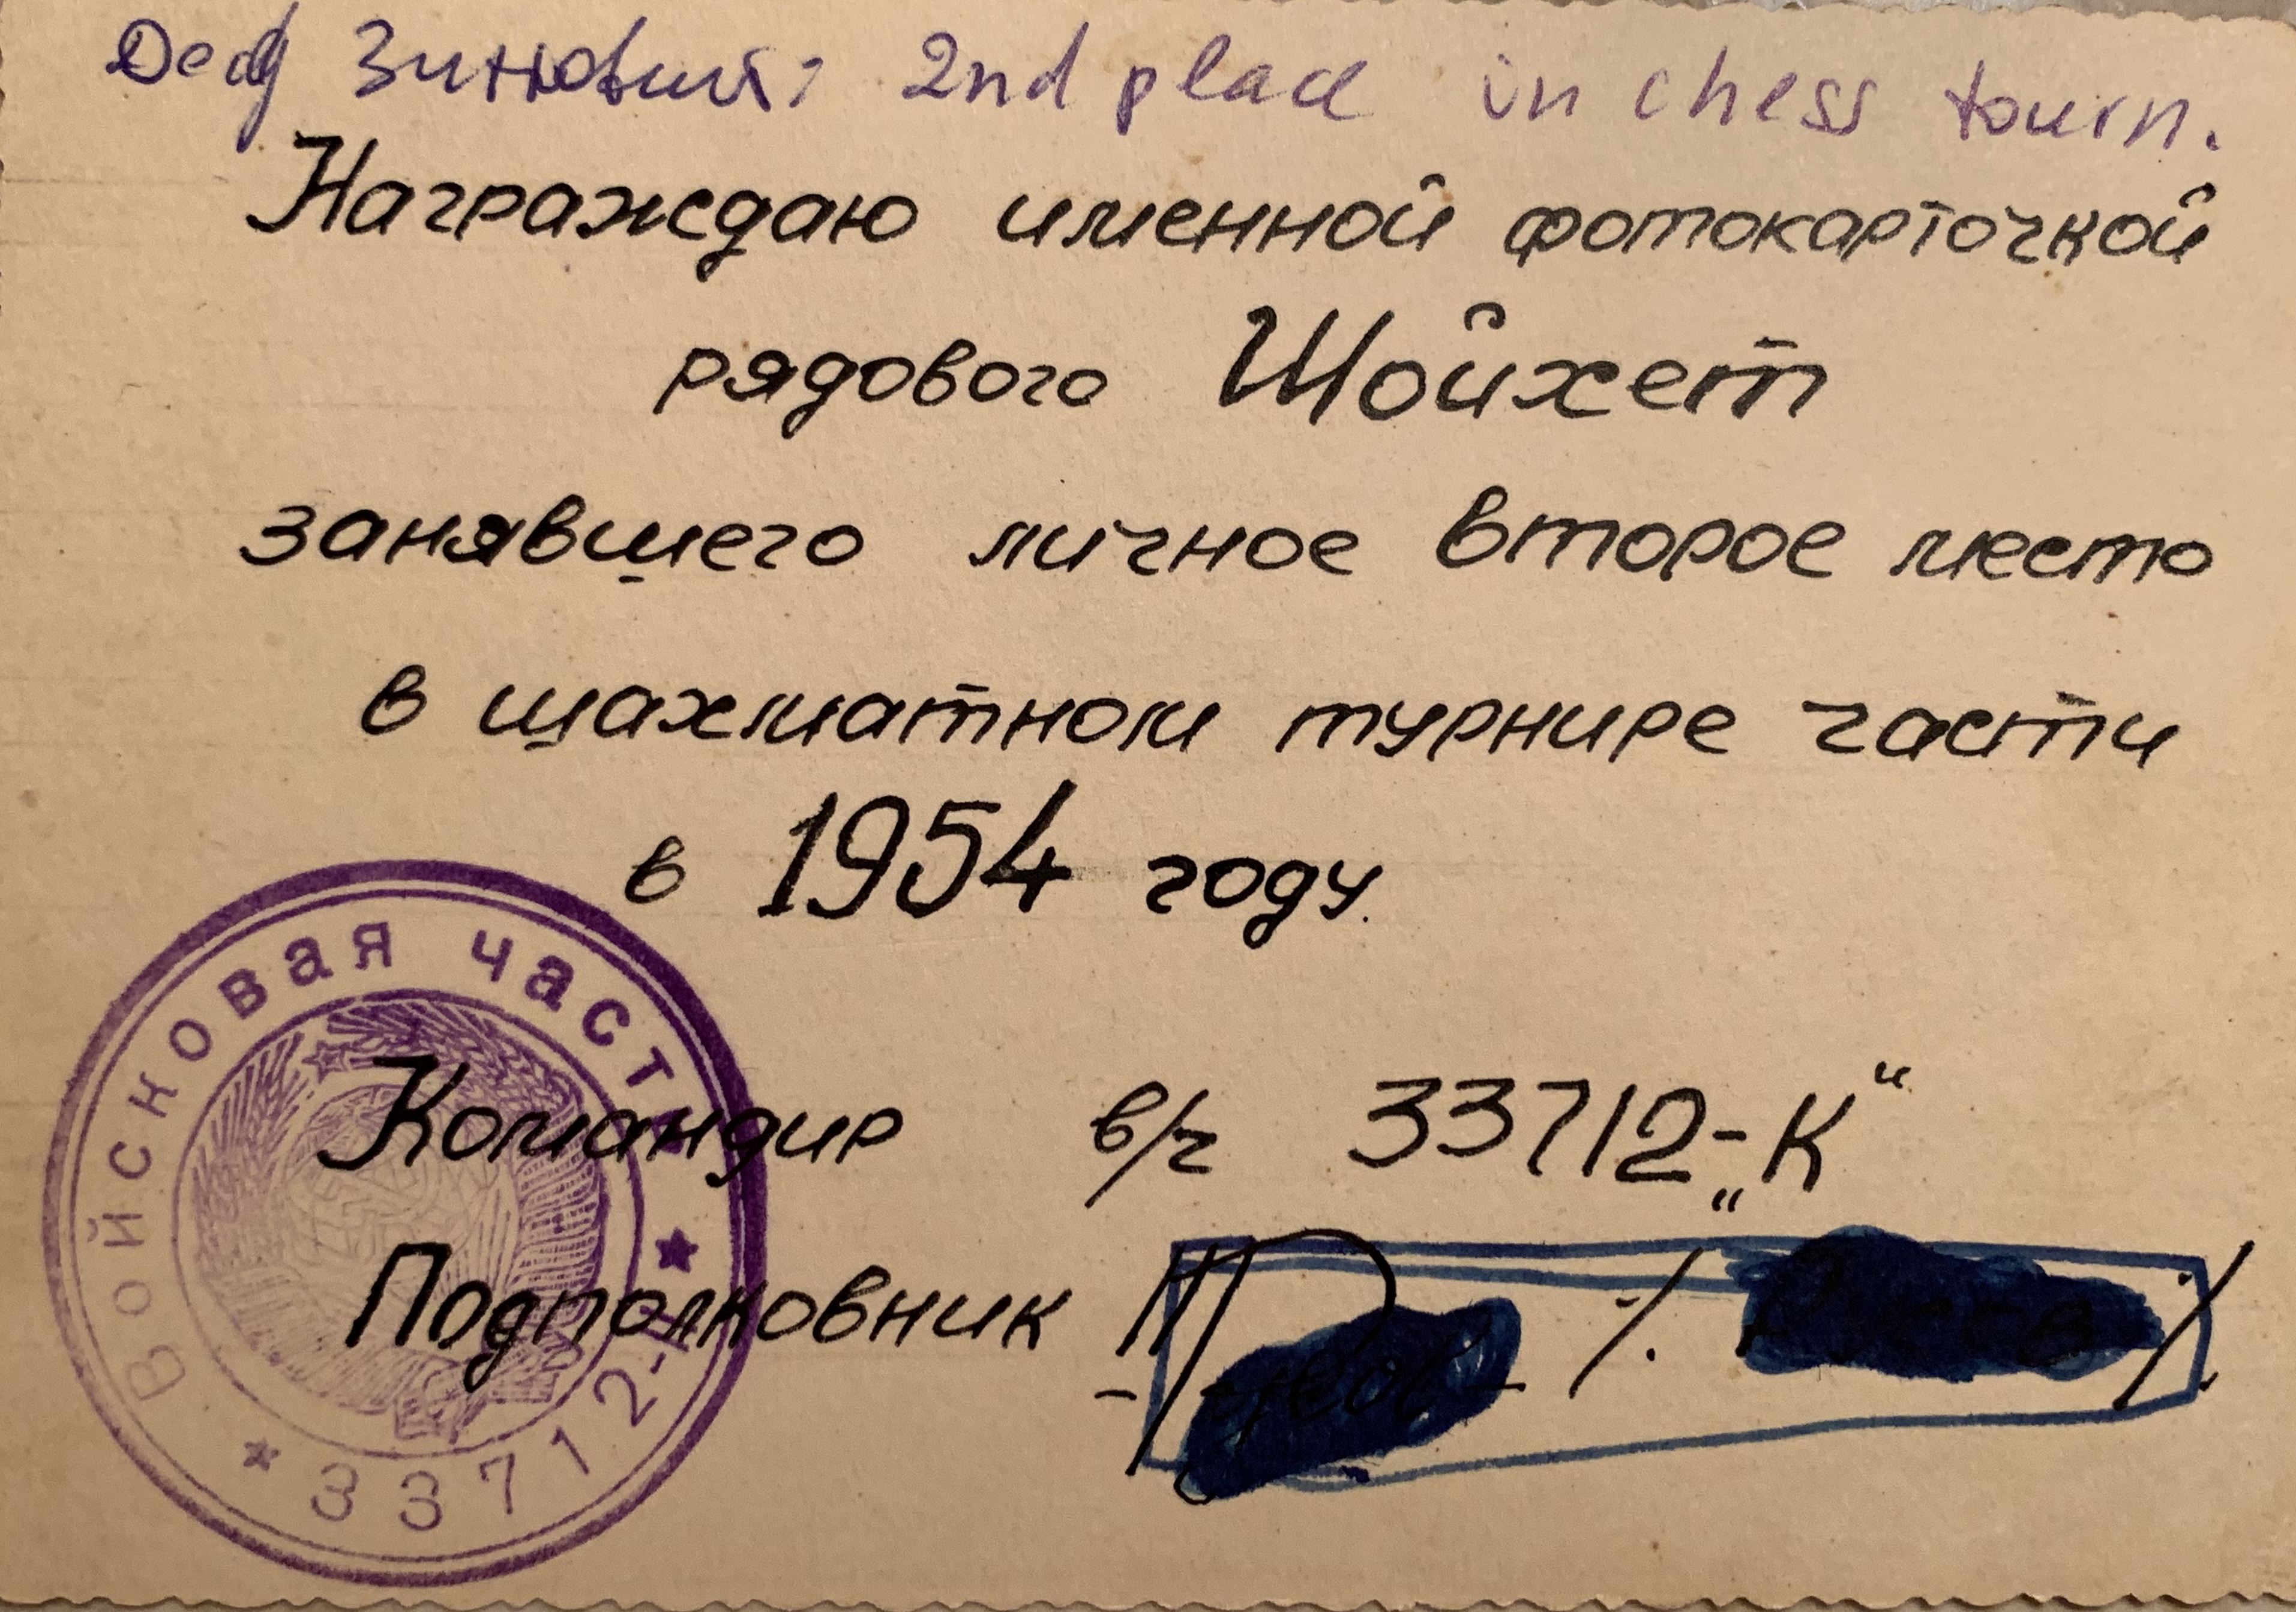 Дед Зиновий: 2nd place in chess tourn.
Награждаю именной фотокарточкой
рядового Шойхет
занявшего личное второе место
в шахматном турнире части
в 1954 году.
Командир в/ч 33712-„К“
Подполковник
Войсковая часть
33712-К